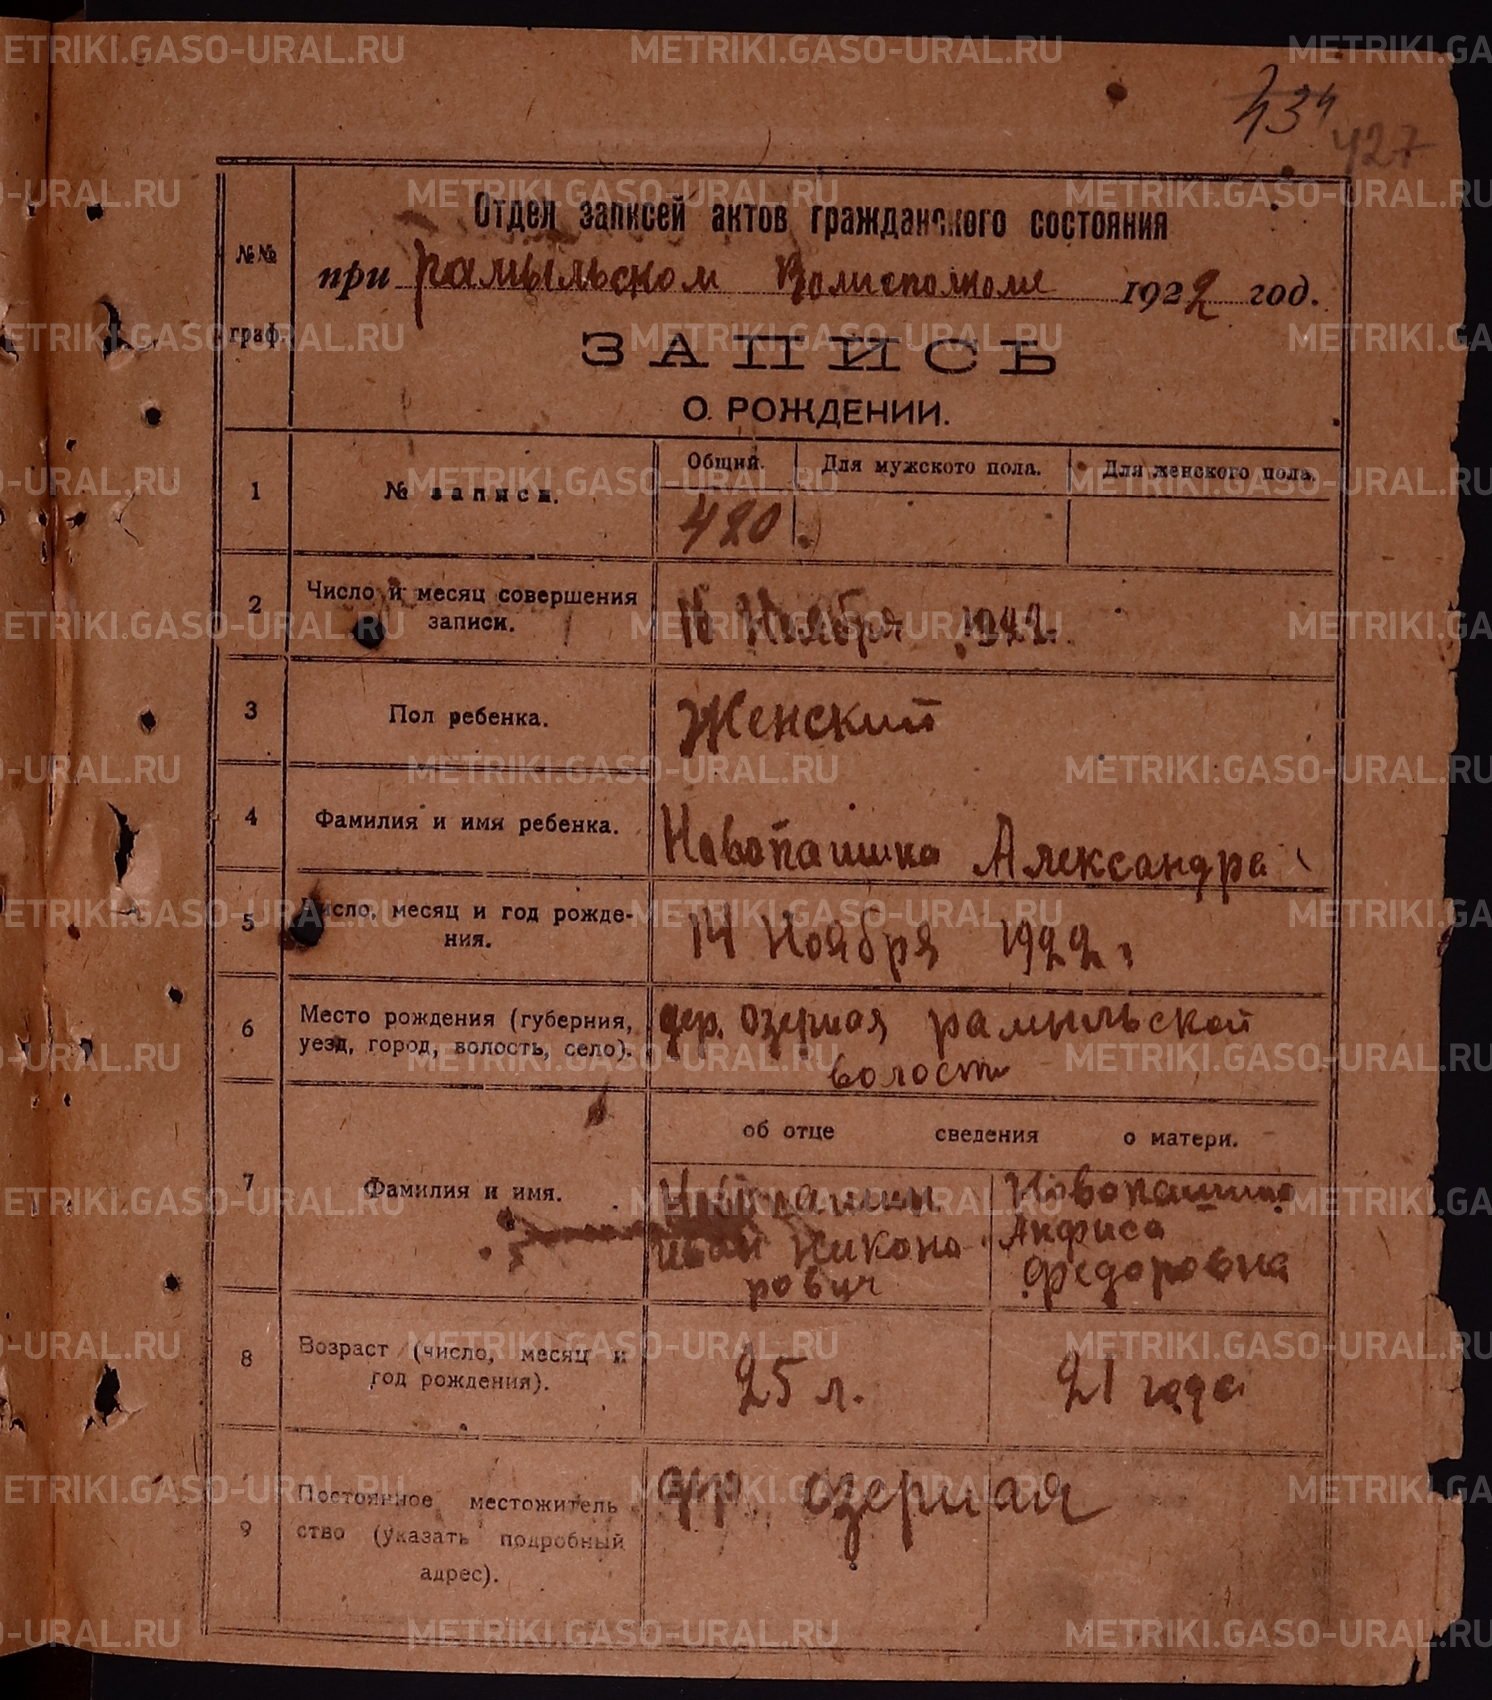 434
427
Отдел записей актов гражданского состояния
№№ граф.
при рамыльском Волисполкоме 1922 год.
ЗАПИСЬ
О РОЖДЕНИИ.
1
№ записи.
Общий.
Для мужского пола.
Для женского пола.
420
2
Число и месяц совершения
записи.
16 Ноября 1922.
3
Пол ребенка.
Женский
4
Фамилия и имя ребенка.
Новопашина Александра
5
Число, месяц и год рожде-
ния.
14 Ноября 1922 г
6
Место рождения (губерния,
уезд, город, волость, село).
дер. озерная рамыльской
волости
об отце сведения о матери.
7
Фамилия и имя.
Новопашин
иван Никона
рович
Новопашина
Анфиса
Федоровна
8
Возраст (число, месяц и
год рождения).
25 л.
21 года
9
Постоянное местожитель
ство (указать подробный
адрес).
дер. озерная
METRIKI.GASO-URAL.RU